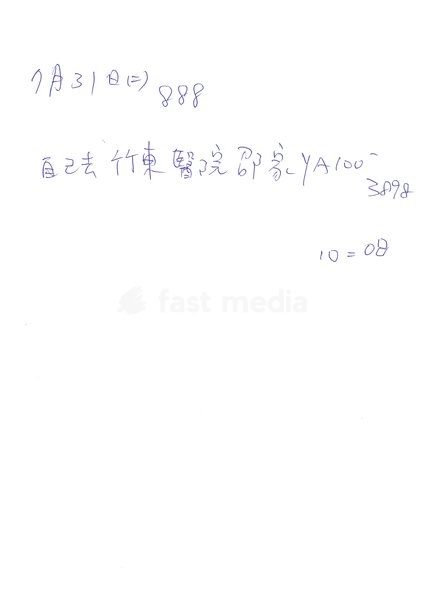 7月31日(二)
888
自己去 竹東醫院 邵家 YA100-
3898
10=08
fast media